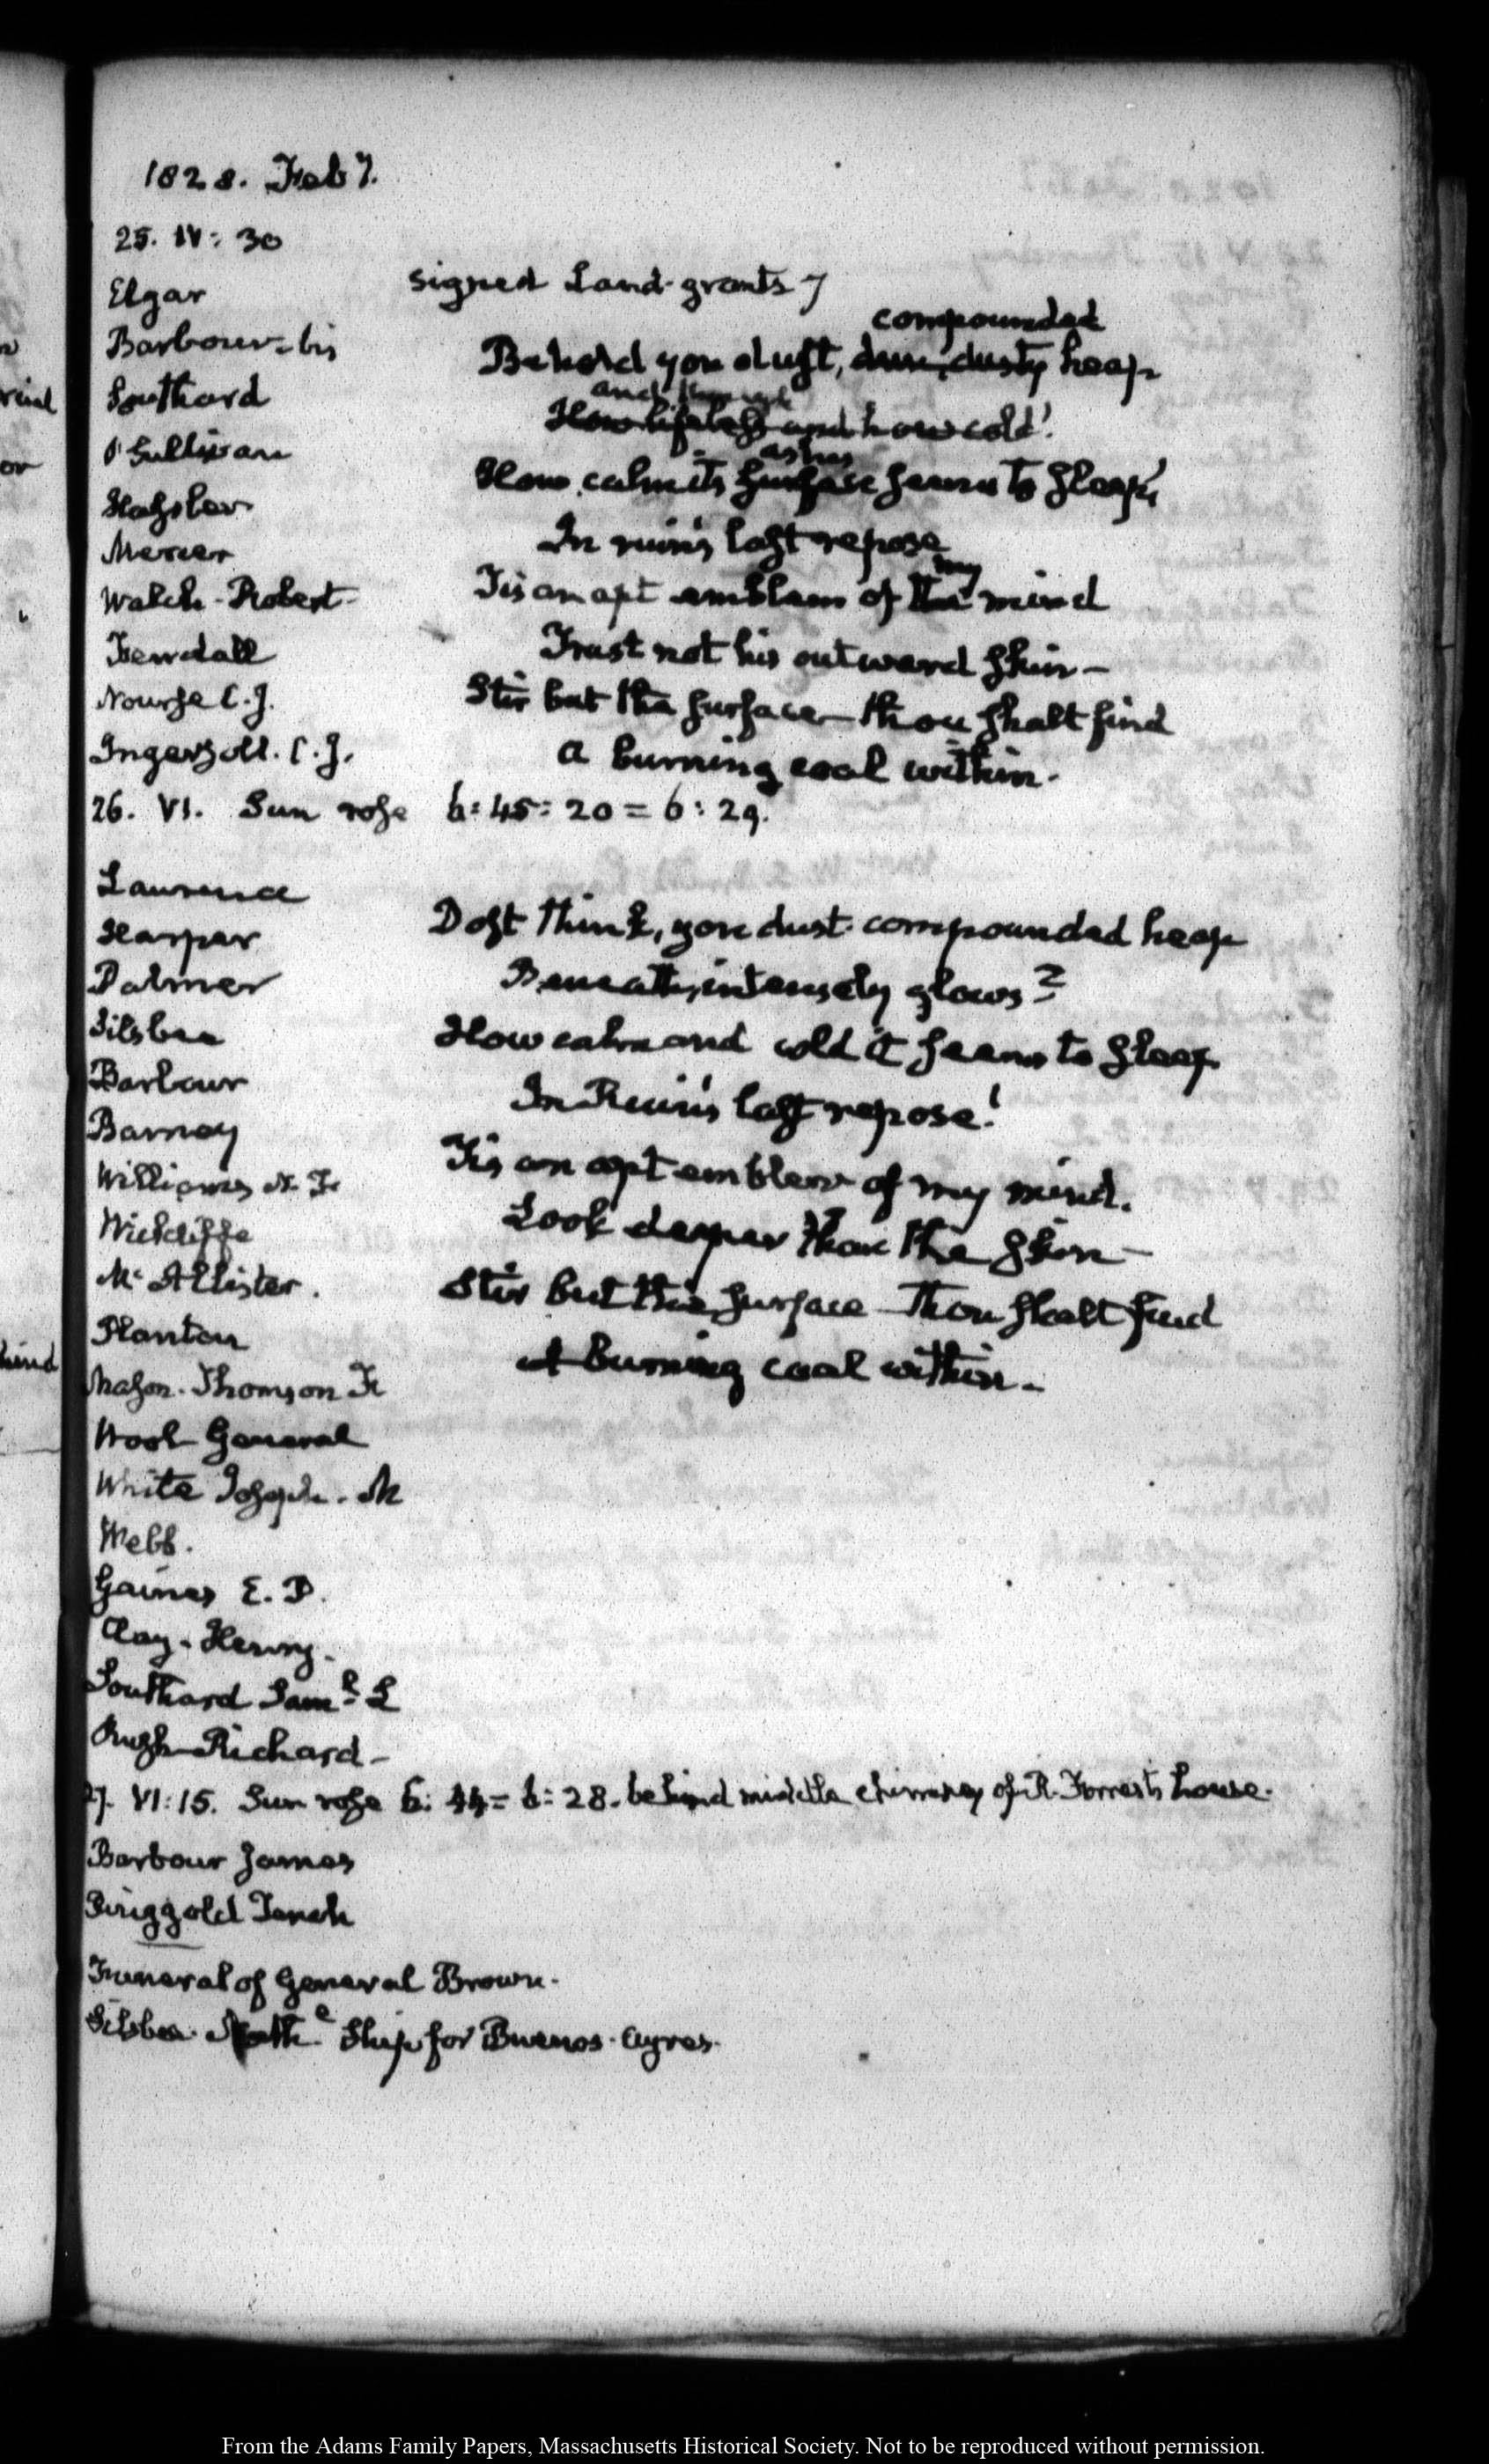 1828. Feb 7.
25. IV: 30
Elgar signed Land-grants 7
compounded
Barbour-bis Behold yon dust, dusty heap
and
Southard How lifeless and how cold!
O'Sullivan ashes
How calm its surface seems to sleep,
Hassler
In ruin's last repose
Mercer my
Walsh-Robert- Tis an apt emblem of the mind
Kendall Trust not his outward skin—
Nourse C. J. Stir but the surface—thou shalt find
Ingersoll. C. J. a burning coal within.
26. VI. Sun rose 6:45:20 = 6:29.
Lawrence
Dost think, yon dust-compounded heap
Harper
Palmer Beneath, intensely glows?
Silsbee How calm and cold it seems to sleep
Barbour In Ruin's last repose!
Barney Tis an apt emblem of my mind.
Williams
Look deeper than the skin—
Wickliffe
McAllister. Stir but the surface—Thou shalt find
Stanton A burning coal within.
Mason. Thomson Fr
Wool General
White Joseph. M
Webb.
Gaines E. P.
Clay-Henry.
Southard Saml. L
Rush-Richard-
27. VI:15. Sun rose 6:44 = 6:28. behind middle chimney of R. Forrest's house.
Barbour James
Ringgold Tench
Funeral of General Brown.
Silsbee. Ship for Buenos-Ayres.
From the Adams Family Papers, Massachusetts Historical Society. Not to be reproduced without permission.